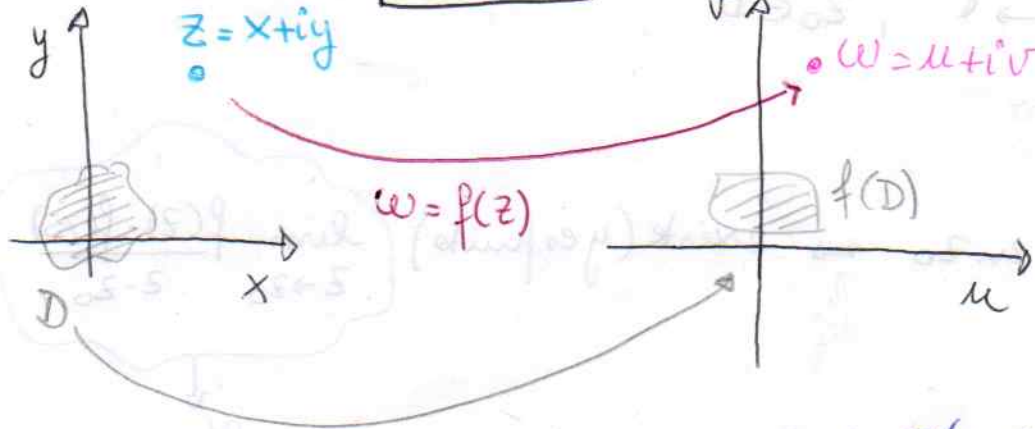 y
z = x+iy
v
w = u+iv
w = f(z)
f(D)
x
u
D